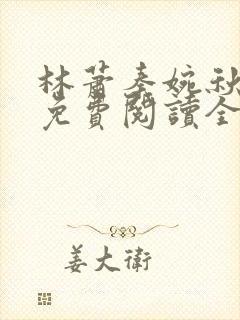 林蕭秦婉秋
免費閱讀全
姜大衛